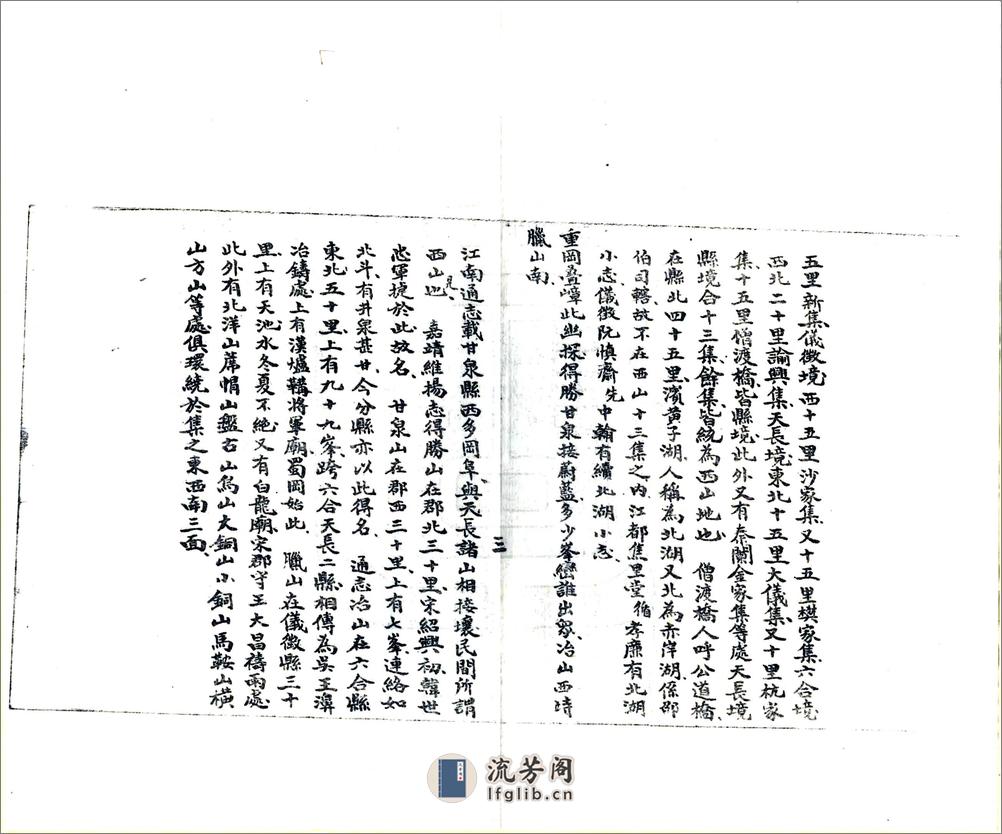 五里新集儀徵境西十五里沙家集又十五里樊家集六合境
西北二十里諭興集天長境東北十五里大儀集又十里杭家
集十五里僧渡橋皆縣境此外又有秦蘭金家集等處天長境
縣境合十三集餘集皆統為西山地也 僧渡橋人呼公道橋
在縣北四十五里濱黃子湖人稱為北湖又北為赤岸湖係邵
伯司轄故不在西山十三集之內江都焦里堂循孝廉有北湖
小志儀徵阮慎齋先中翰有續北湖小志
重岡疊嶂此幽探得勝甘泉接蔚藍多少峯巒誰出衆冶山西峙
臘山南
江南通志載甘泉縣西多岡阜與天長諸山相接壤民間所謂
西山也 嘉靖維揚志得勝山在郡北三十里宋紹興初韓世
忠軍捷於此故名 甘泉山在郡西三十里上有七峯連絡如
北斗有井泉甚甘今分縣亦以此得名 通志冶山在六合縣
東北五十里上有九十九峯跨六合天長二縣相傳為吳王濞
冶鑄處上有漢爐鞲將軍廟蜀岡始此 臘山在儀徵縣三十
里上有天池水冬夏不絶又有白龍廟宋郡守王大昌禱雨處
此外有北洋山蓆帽山盤古山烏山大銅山小銅山馬鞍山橫
山方山等處俱環繞於集之東西南三面
三
流芳阁
lfglib.cn